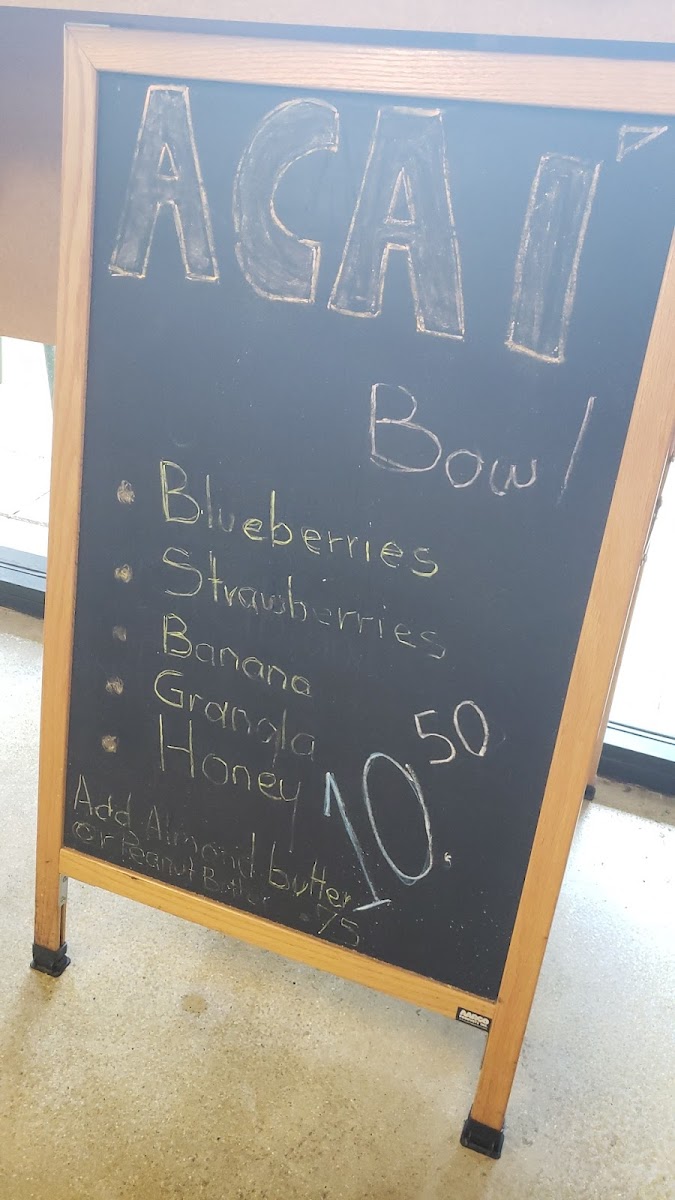 ACAI´
Bowl
Blueberries
Strawberries
Banana
Granola
Honey
10.50
Add Almond butter
or Peanut Butter .75
AARCO